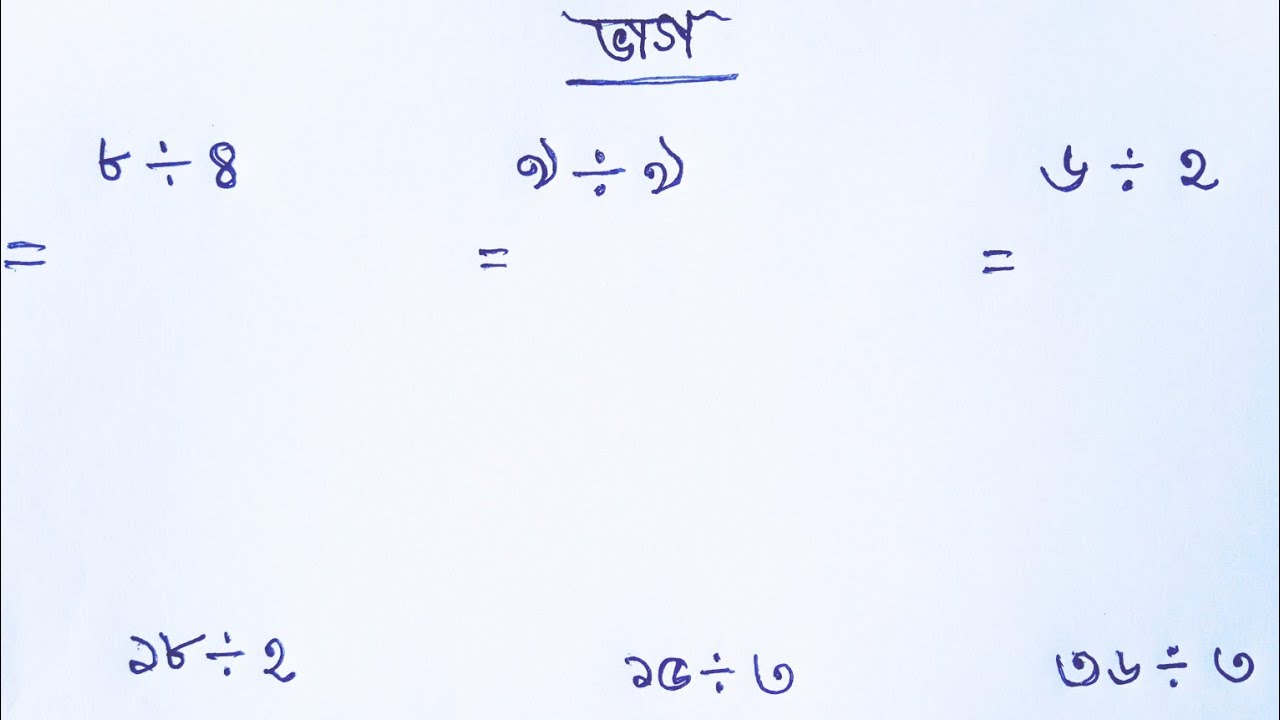 ভাগ
৮ ÷ ৪ ৯ ÷ ৯ ৬ ÷ ২
= = =
১৮ ÷ ২ ১৫ ÷ ৩ ৩৬ ÷ ৩